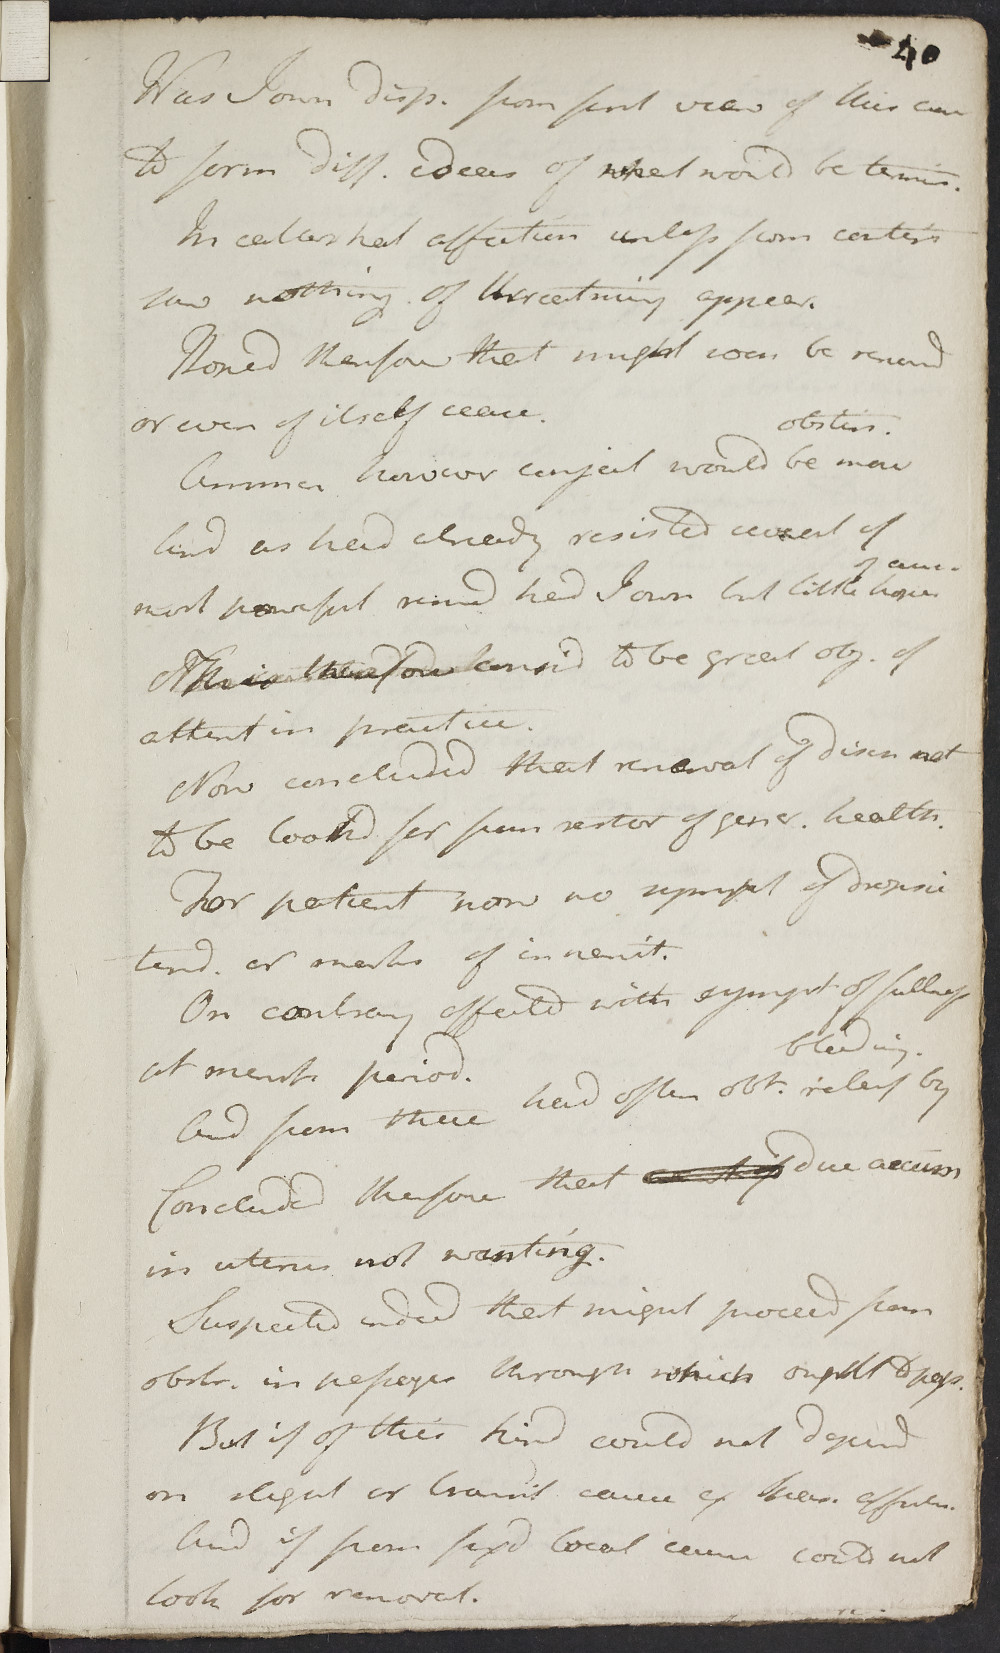 40
Was I own disp. from first view of this case
to form diff. ideas of what would be termin.
In catarrhal affection unless from contin
saw nothing of threatening appear.
Hoped therefore that might soon be remov'd
or even of itself cease.
Amenor however conject would be more obstin.
And as had already resisted several of
most powerful remed had I own but little hopes of cure
This therefore consid to be great obj. of
attent in practice.
Now concluded that renewal of disch not
to be look'd for from restor of gener. health.
For patient now no sympt of dropsic
tend. or marks of inanit.
On contrary affected with sympt of fullness
at menst. period.
And from these had often obt. relief by bleeding.
Concluded therefore that due accum
in uterus not wanting.
Suspected indeed that might proceed from
obstr. in passages through which ought to pass.
But if of this kind could not depend
on slight or transit cause as there.
And if from fix'd local cause could not
look for removal.